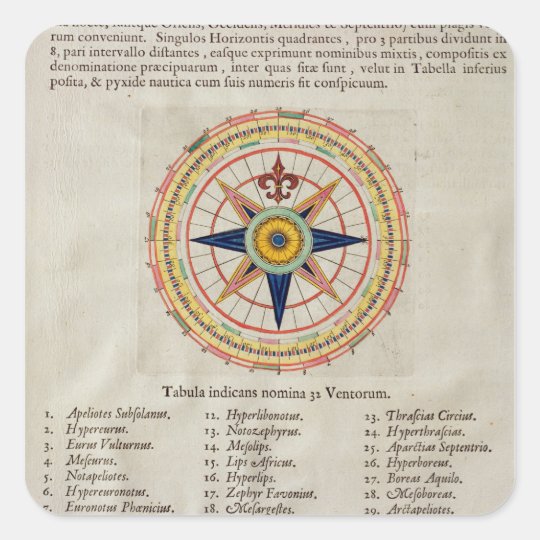 Oriens, Occidens, Meridies & Septentrio, cum plagis
rum conveniunt. Singulos Horizontis quadrantes, pro 3 partibus dividunt in
8, pari intervallo diſtantes, eaſque exprimunt nominibus mixtis, compoſitis ex
denominatione præcipuarum, inter quas ſitæ ſunt, velut in Tabella inferius
poſita, & pyxide nautica cum ſuis numeris ſit conſpicuum.
Tabula indicans nomina 32 Ventorum.
1. Apeliotes Subſolanus.
2. Hypereurus.
3. Eurus Vulturnus.
4. Meſeurus.
5. Notapeliotes.
6. Hypereuronotus.
7. Euronotus Phœnicius.
12. Hyperlibonotus.
13. Notozephyrus.
14. Meſolips.
15. Lips Africus.
16. Hyperlips.
17. Zephyr Favonius.
18. Meſargeſtes.
23. Thraſcias Circius.
24. Hyperthraſcias.
25. Aparctias Septentrio.
26. Hyperboreus.
27. Boreas Aquilo.
28. Meſoboreas.
29. Arctapeliotes.